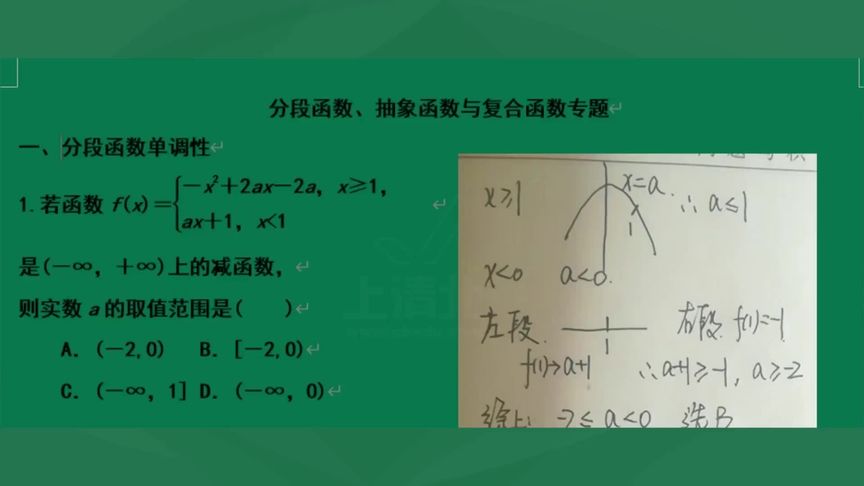 分段函数、抽象函数与复合函数专题
一、分段函数单调性
1.若函数 f(x)={−x²+2ax−2a, x≥1,
ax+1, x<1
是(−∞, +∞)上的减函数,
则实数 a 的取值范围是( )
A. (−2,0) B. [−2,0)
C. (−∞, 1] D. (−∞, 0)
x≥1 x=a ∴ a≤1
1
x<0 a<0.
左段 右段 f(1)=-1
1
f(1)→a+1 ∴a+1≥-1, a≥-2
综上: -2≤a<0 选B